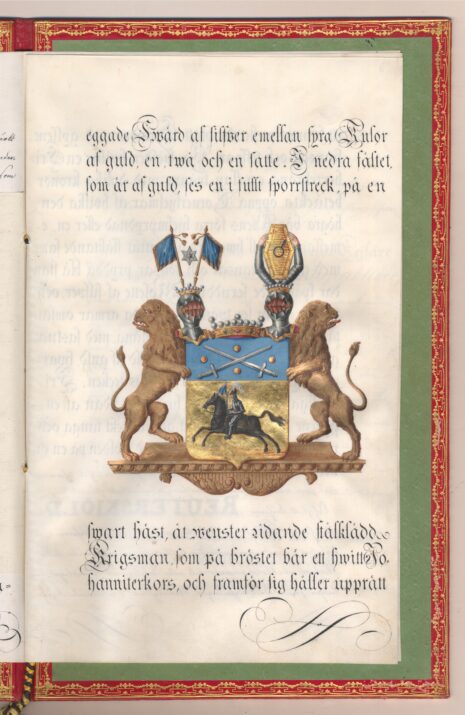 eggade Swärd af silfver emellan fyra Kulor
af guld, en twå och en satte. I nedra fältet,
som är af guld, ses en i fullt sporrstreck, på en
swart häst, åt wenster ridande stålklädd
Krigsman, som på bröstet bär ett hwitt Jo-
hanniterkors, och framför sig håller upprätt